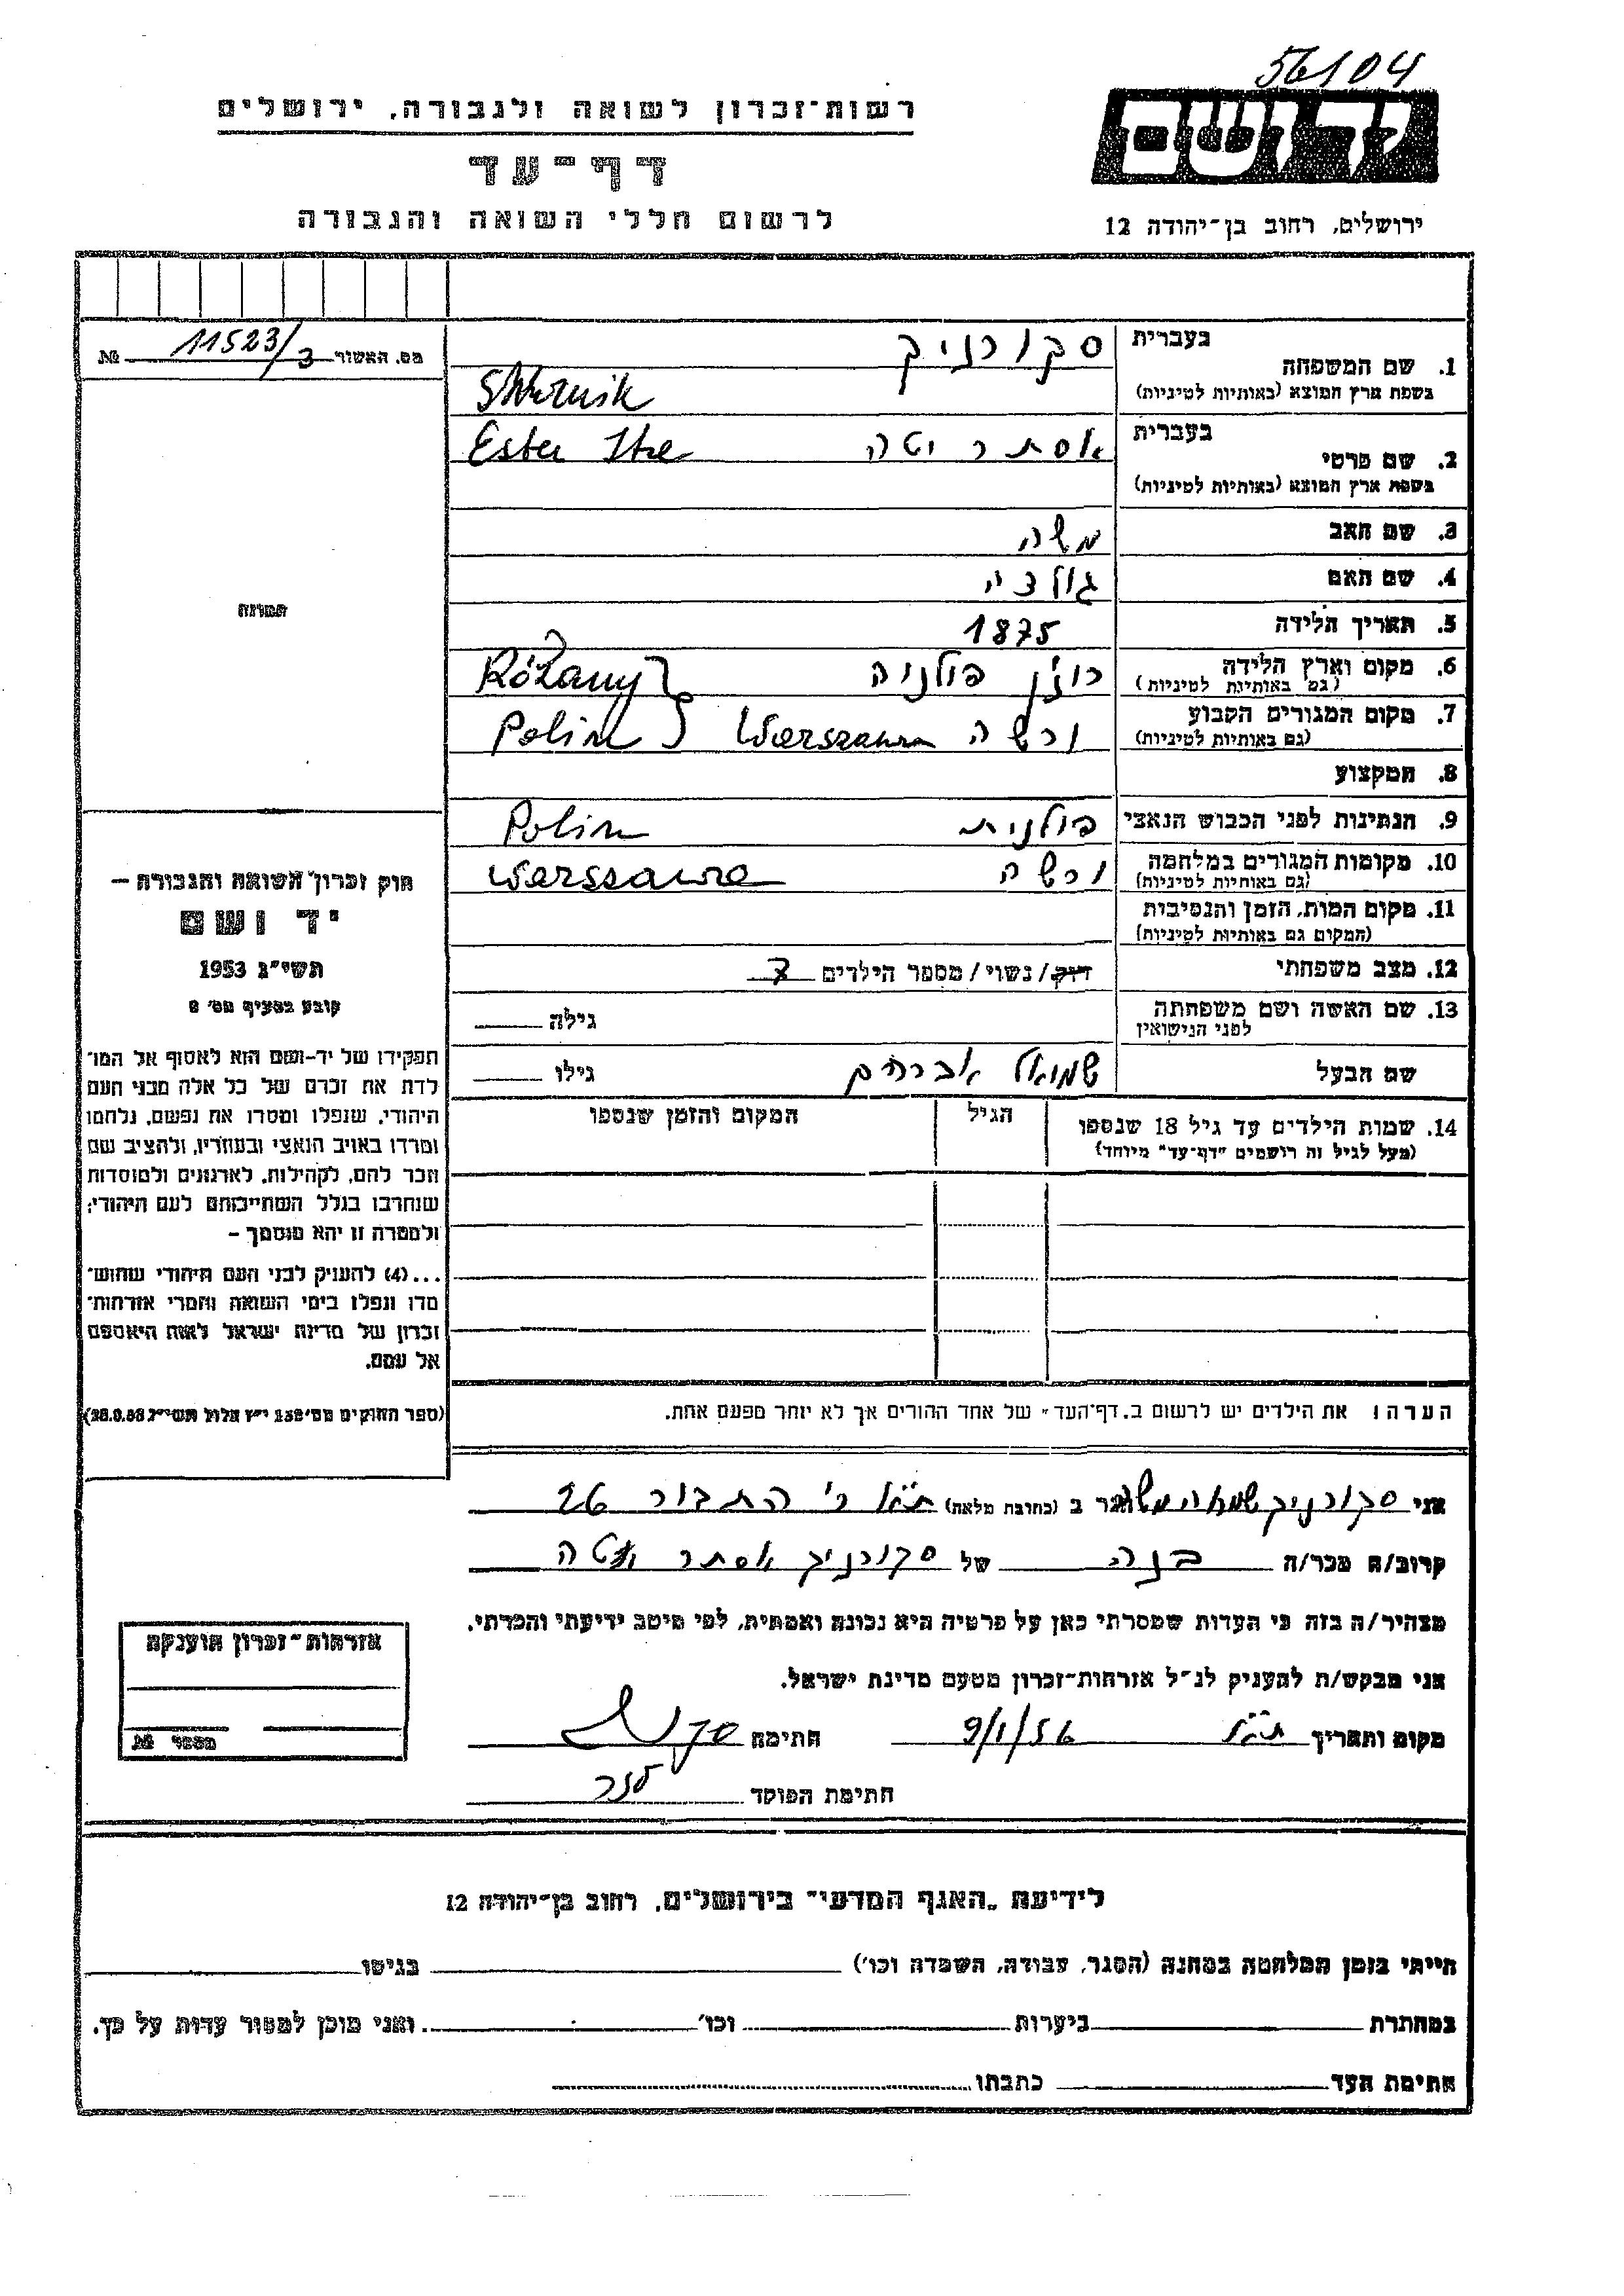 56104
רשות-זכרון לשואה ולגבורה, ירושלים
יד ושם
דף-עד
לרשום חללי השואה והגבורה
ירושלים, רחוב בן-יהודה 12
מס. האשור 11523/3 №
1. שם המשפחה
בעברית סקורניק
בשפת ארץ המוצא (באותיות לטיניות) Skurnik
2. שם פרטי
בעברית אסתר יטה Ester Ite
בשפת ארץ המוצא (באותיות לטיניות)
3. שם האב משה
4. שם האם גולדה
5. תאריך הלידה 1875
6. מקום וארץ הלידה רוז'ן פולניה Różany
(גם באותיות לטיניות)
7. מקום המגורים הקבוע ורשה Warszawa Polin
(גם באותיות לטיניות)
8. המקצוע
9. הנתינות לפני הכבוש הנאצי פולנית Polin
10. מקומות המגורים במלחמה ורשה Warszawa
(גם באותיות לטיניות)
11. מקום המות, הזמן והנסיבות
(המקום גם באותיות לטיניות)
12. מצב משפחתי רווק/ נשוי/ מספר הילדים 7
13. שם האשה ושם משפחתה
לפני הנישואין גילה
שם הבעל שמואל אברהם גילו
14. שמות הילדים עד גיל 18 שנספו הגיל המקום והזמן שנספו
(מעל לגיל זה רושמים "דף-עד" מיוחד)
הערה: את הילדים יש לרשום ב„דף-העד" של אחד ההורים אך לא יותר מפעם אחת.
התמונה
חוק זכרון השואה והגבורה –
יד ושם
תשי"ג 1953
קובע בסעיף מס' 2
תפקידו של יד-ושם הוא לאסוף אל המו-
לדת את זכרם של כל אלה מבני העם
היהודי, שנפלו ומסרו את נפשם, נלחמו
ומרדו באויב הנאצי ובעוזריו, ולהציב שם
וזכר להם, לקהילות, לארגונים ולמוסדות
שנחרבו בגלל השתייכותם לעם היהודי;
ולמטרה זו יהא מוסמך –
...(4) להעניק לבני העם היהודי שהוש-
מדו ונפלו בימי השואה והמרי אזרחות-
זכרון של מדינת ישראל לאות היאספם
אל עמם.
(ספר החוקים מס' 132 י"ז אלול תשי"ג 28.8.53)
אני סקורניק משה הגר ב (כתובת מלאה) ת"א ר' התבור 26
קרוב/ה מכר/ה בנה של סקורניק אסתר יטה
מצהיר/ה בזה כי העדות שמסרתי כאן על פרטיה היא נכונה ואמתית, לפי מיטב ידיעתי והכרתי.
אני מבקש/ת להעניק לנ"ל אזרחות-זכרון מטעם מדינת ישראל.
מקום ותאריך ת"א 9/1/56 חתימה
חתימת הפוקד
אזרחות-זכרון הוענקה
מספר №
לידיעת „האגף המדעי" בירושלים, רחוב בן-יהודה 12
הייתי בזמן המלחמה במחנה (הסגר, עבודה, השמדה וכו') בגיטו
במחתרת ביערות וכו' ואני מוכן למסור עדות על כך.
חתימת העד כתבתו